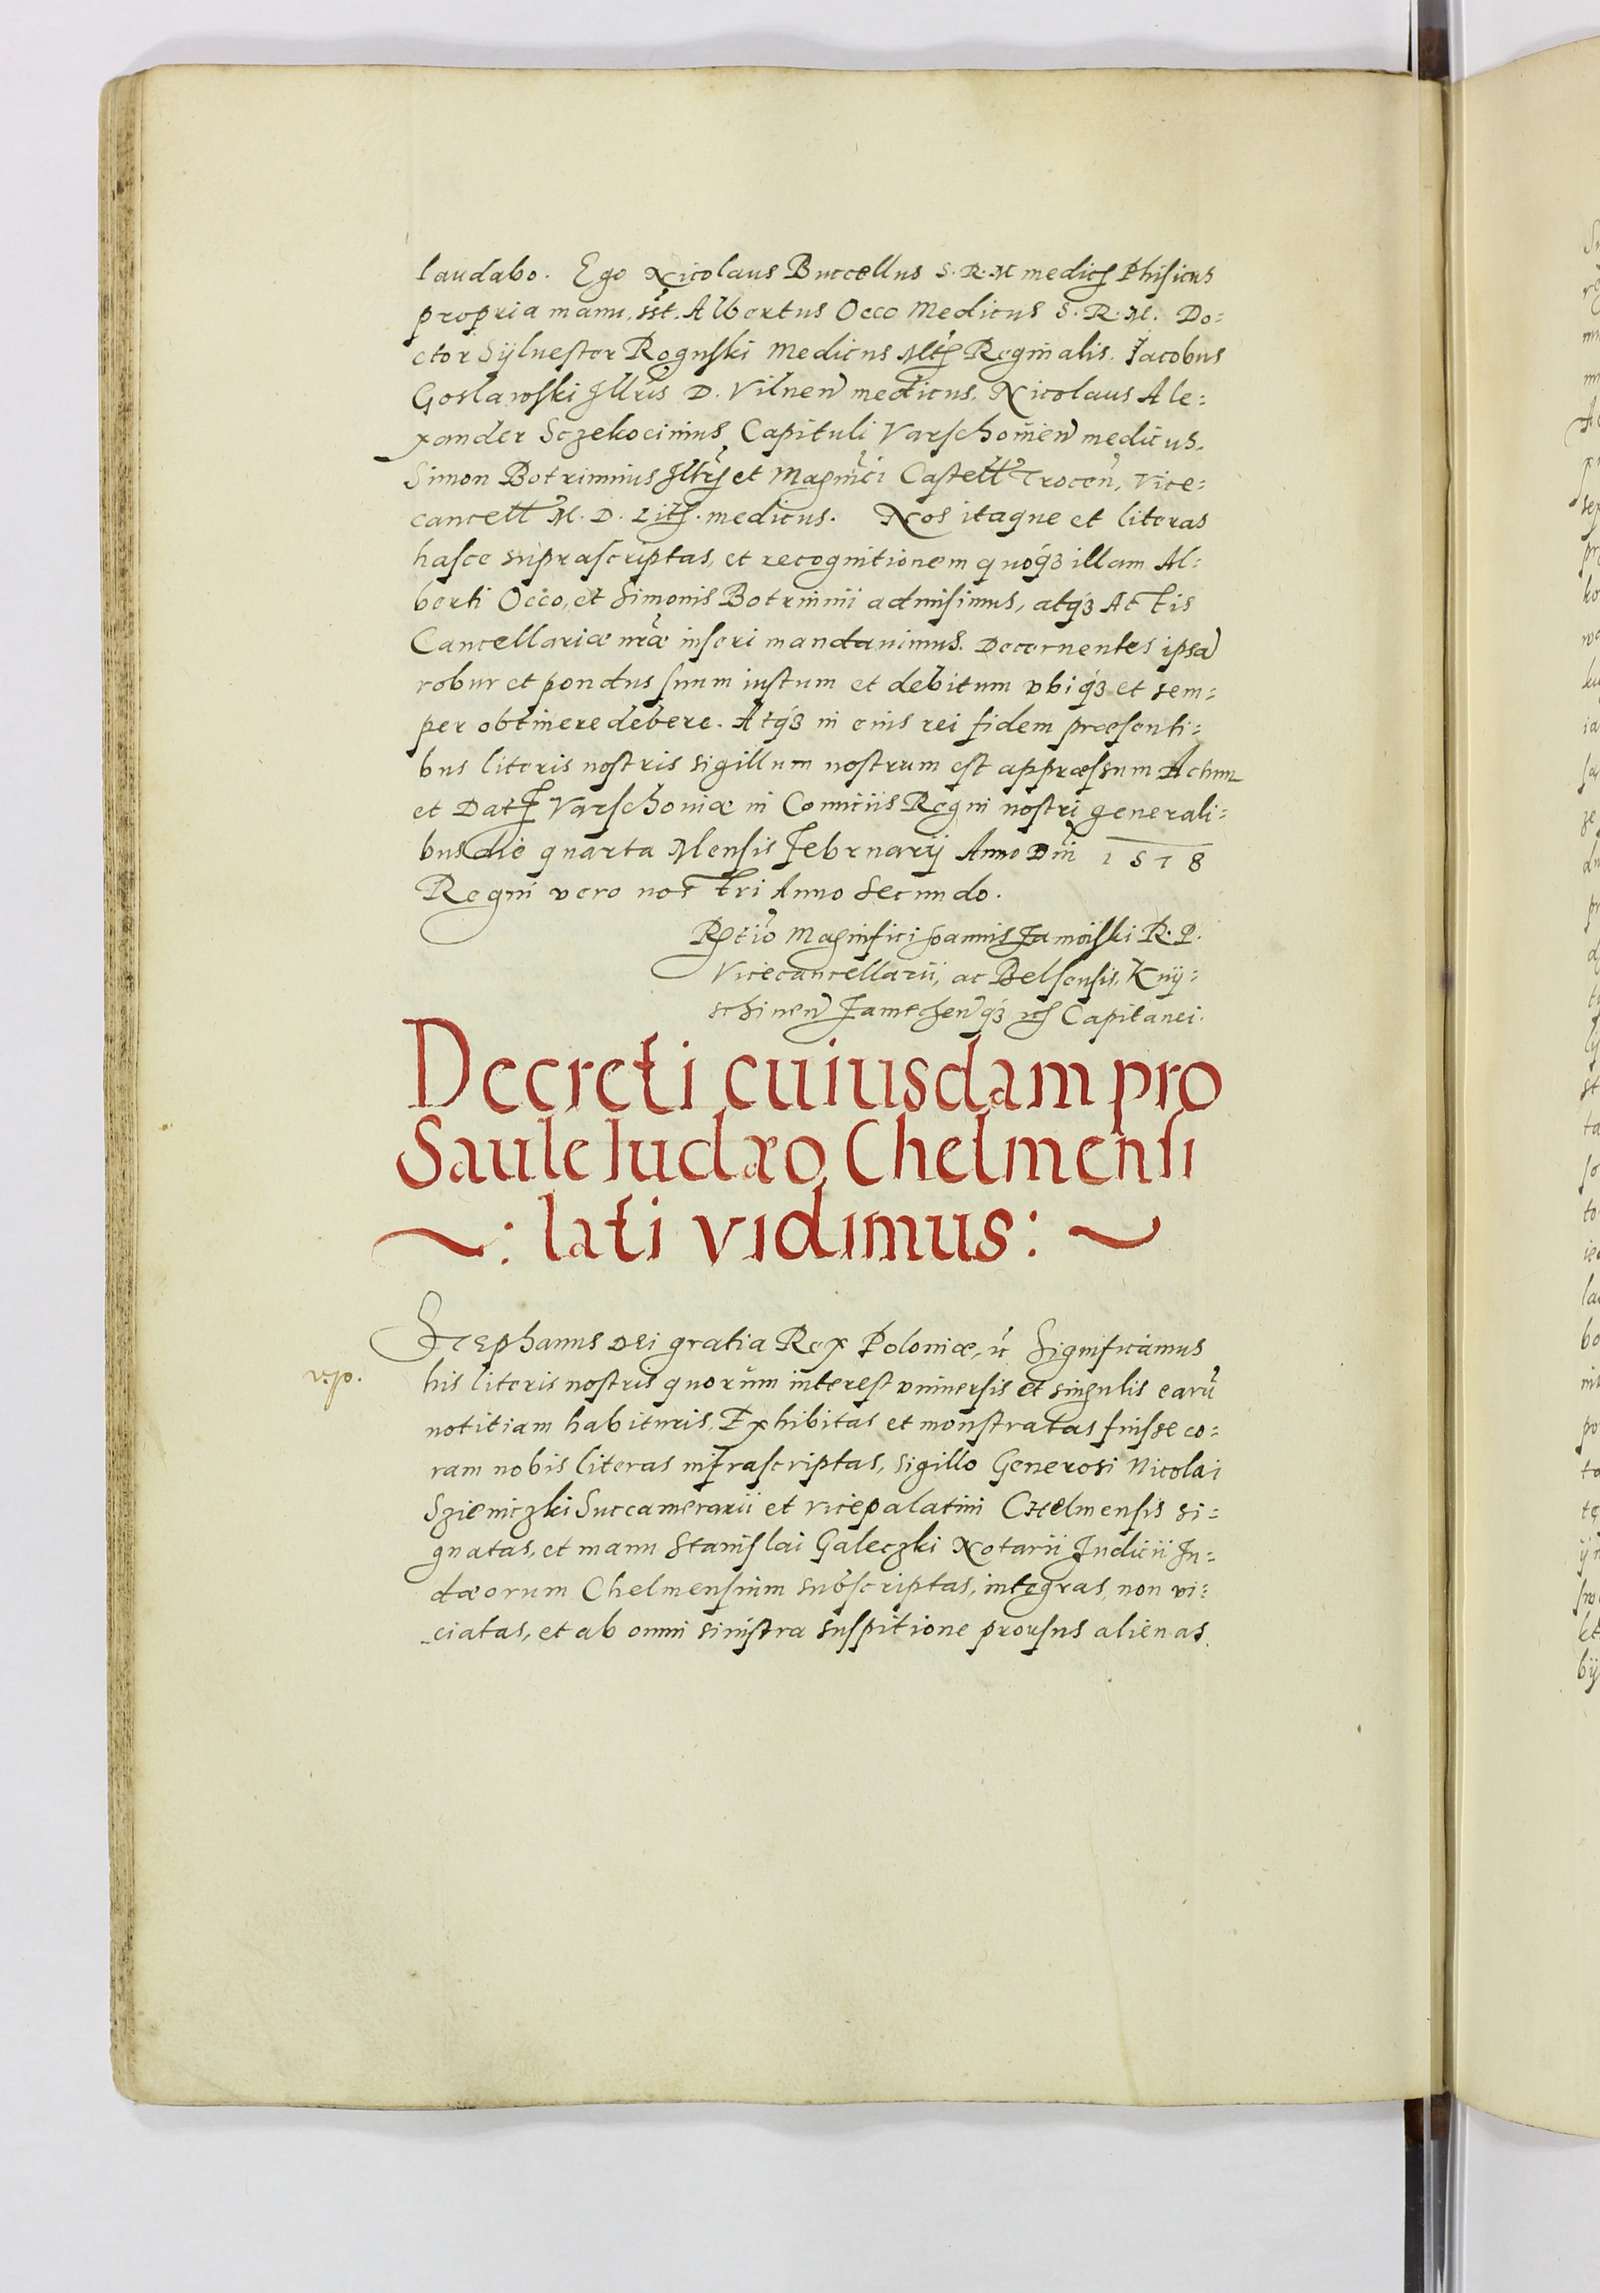 laudabo. Ego Nicolaus Buccellus S. R. M medicꝰ Phisicus
propria manu. sst. Albertus Occo Medicus S. R. M. Do=
ctor Sÿluester Roguski Medicus Mtis Reginalis. Jacobus
Goslawski Illris D. Vilnen medicus. Nicolaus Ale=
xander Sczekocinius Capituli Varschouien medicus.
Simon Botriminus Illris et Magnici Castell Trocen, Vice=
cancell M. D. Lith. medicus. Nos itaque et literas
hasce suprascriptas, et recognitionem quoqȝ illam Al=
berti Occo, et Simonis Botriminii admisimus, atqȝ Actis
Cancellariæ nræ inseri mandauimus. Decernentes ipsã
robur et pondus suum iustum et debitum vbiqȝ et sem=
per obtinere debere. Atqȝ in eius rei fidem præsenti=
bus literis nostris sigillum nostrum est appræssum Actum
et Dat Varschouiæ in Comitiis Regni nostri generali=
bus die quarta Mensis Februarij Anno Dni 1578
Regni vero nostri Anno Secundo.
Rtio Magnifici Joannis Zamoiski R. P.
Vicecancellarii, ac Belsensis, Knÿ=
schinen Zamechenqȝ Capitanei.
Decreti cuiusdam pro
Saule Iudæo Chelmensi
lati vidimus:
Stephanus Dei gratia Rex Poloniæ, ꝛc Significamus
his literis nostris quorum interest vniuersis et singulis earũ
notitiam habituris, Exhibitas et monstratas fuisse co=
ram nobis literas infrascriptas, sigillo Generosi Nicolai
Szieniczki Succamerarii et vicepalatini Chelmensis si=
gnatas, et manu Stanislai Galeczki Notarii Judicii Ju=
dæorum Chelmensium subscriptas, integras, non vi=
ciatas, et ab omni sinistra suspitione prorsus alienas